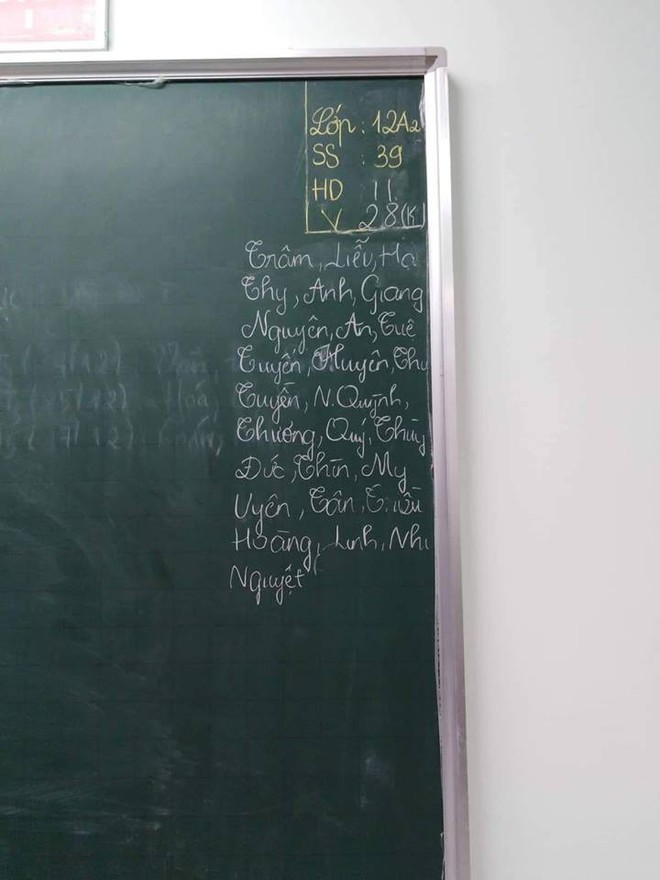 Lớp : 12A2
SS : 39
HD 11
V 28(K)
Trâm, Liễu, Hạ
Thy, Anh, Giang
Nguyên, An, Tuê
Tuyến, Huyên, Thu
Tuyền, N.Quỳnh,
Thương, Quý, Thùy
Đức, Thìn, My
Uyên, Tân, Triều
Hoàng, Linh, Nhi
Nguyệt